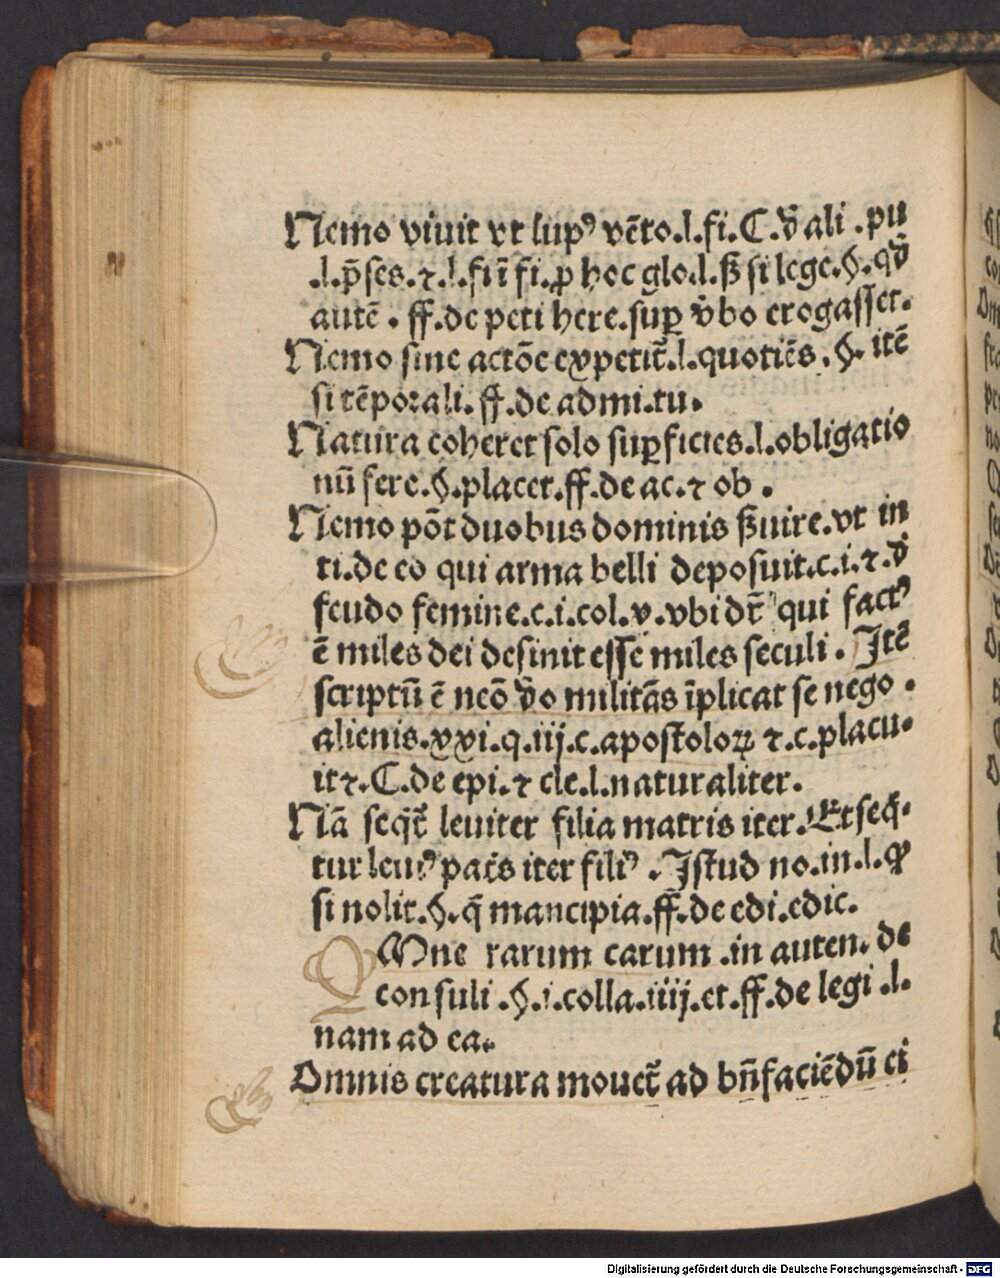 Nemo viuit vt lupꝰ vēto.l.fi.C.ð ali .pu
.l.p̄ses.⁊.l.fi ī fi.ꝓ hoc glo.l.ß si lege.§.qð
autē . ff.de peti here.suꝑ v̄bo erogasset.
Nemo sine actōe expetit̃.l.quotiēs.§. itē
si tēpoꝛali. ff.de admi.tu.
Natura coheret solo suꝑficies.l.obligatio
nū fere.§.placet.ff.de ac.⁊ ob .
Nemo pōt duobus dominis ßuire.vt in
ti.de eo qui arma belli deposuit.c.i.⁊.ð
feudo femine.c.i.col.v.vbi dr̄ qui factꝰ
ē miles dei desinit esse miles seculi . Itē
scriptū ē neō ðo militās īplicat se nego .
alienis.xxi.q.iij.c.apostoloꝝ ⁊.c.placu.
it⁊.C.de epi.⁊ cle.l.naturaliter.
Nā seqt̃ leuiter filia matris iter.Et seq̃.
tur leuiꝰ pat̃s iter filiꝰ . Istud no.in.l.ꝙ
si nolit.§.q̄ mancipia.ff.de edi.edic.
OMne rarum carum .in auten. de
consuli .§.i.colla.iiij.et.ff.de legi .l.
nam ad ea.
Omnis creatura mouet̃ ad bn̄faciēdū ei
Digitalisierung gefördert durch die Deutsche Forschungsgemeinschaft - DFG